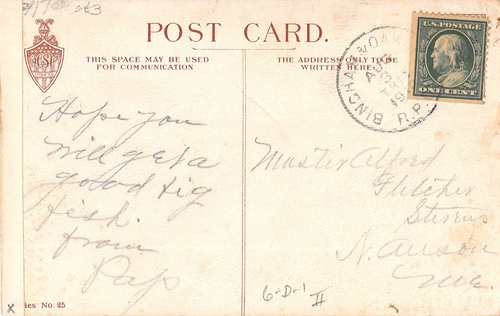 POST CARD.
THIS SPACE MAY BE USED
FOR COMMUNICATION
THE ADDRESS ONLY TO BE
WRITTEN HERE
U.S. POSTAGE
ONE CENT
BINGHAM & OAK
R.P.
Hope you
will get a
good big
fish.
from
Pap
Master Alford
Fletcher
Stevens
N. Anson
Me.
6-D-1
II
x
ies No. 25